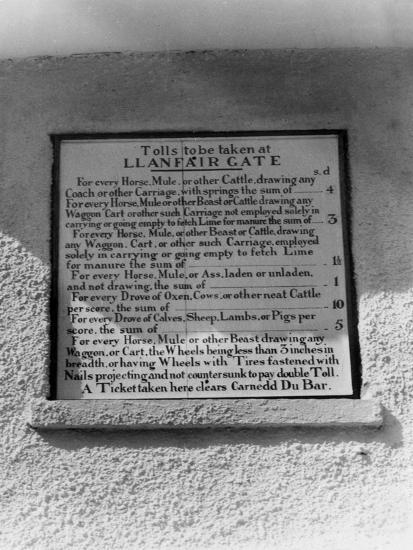 Tolls to be taken at
LLANFAIR GATE
s. d
For every Horse, Mule, or other Cattle, drawing any
Coach or other Carriage, with springs the sum of 4
For every Horse, Mule or other Beast or Cattle drawing any
Waggon Cart or other such Carriage not employed solely in
carrying or going empty to fetch Lime for manure the sum of 3
For every Horse, Mule, or other Beast or Cattle, drawing
any Waggon, Cart, or other such Carriage, employed
solely in carrying or going empty to fetch Lime
for manure the sum of 1½
For every Horse, Mule, or Ass, laden or unladen,
and not drawing, the sum of 1
For every Drove of Oxen, Cows, or other neat Cattle
per score, the sum of 10
For every Drove of Calves, Sheep, Lambs, or Pigs per
score, the sum of 5
For every Horse, Mule or other Beast drawing any
Waggon, or Cart, the Wheels being less than 3 inches in
breadth, or having Wheels with Tires fastened with
Nails projecting and not countersunk to pay double Toll.
A Ticket taken here clears Carnedd Du Bar.